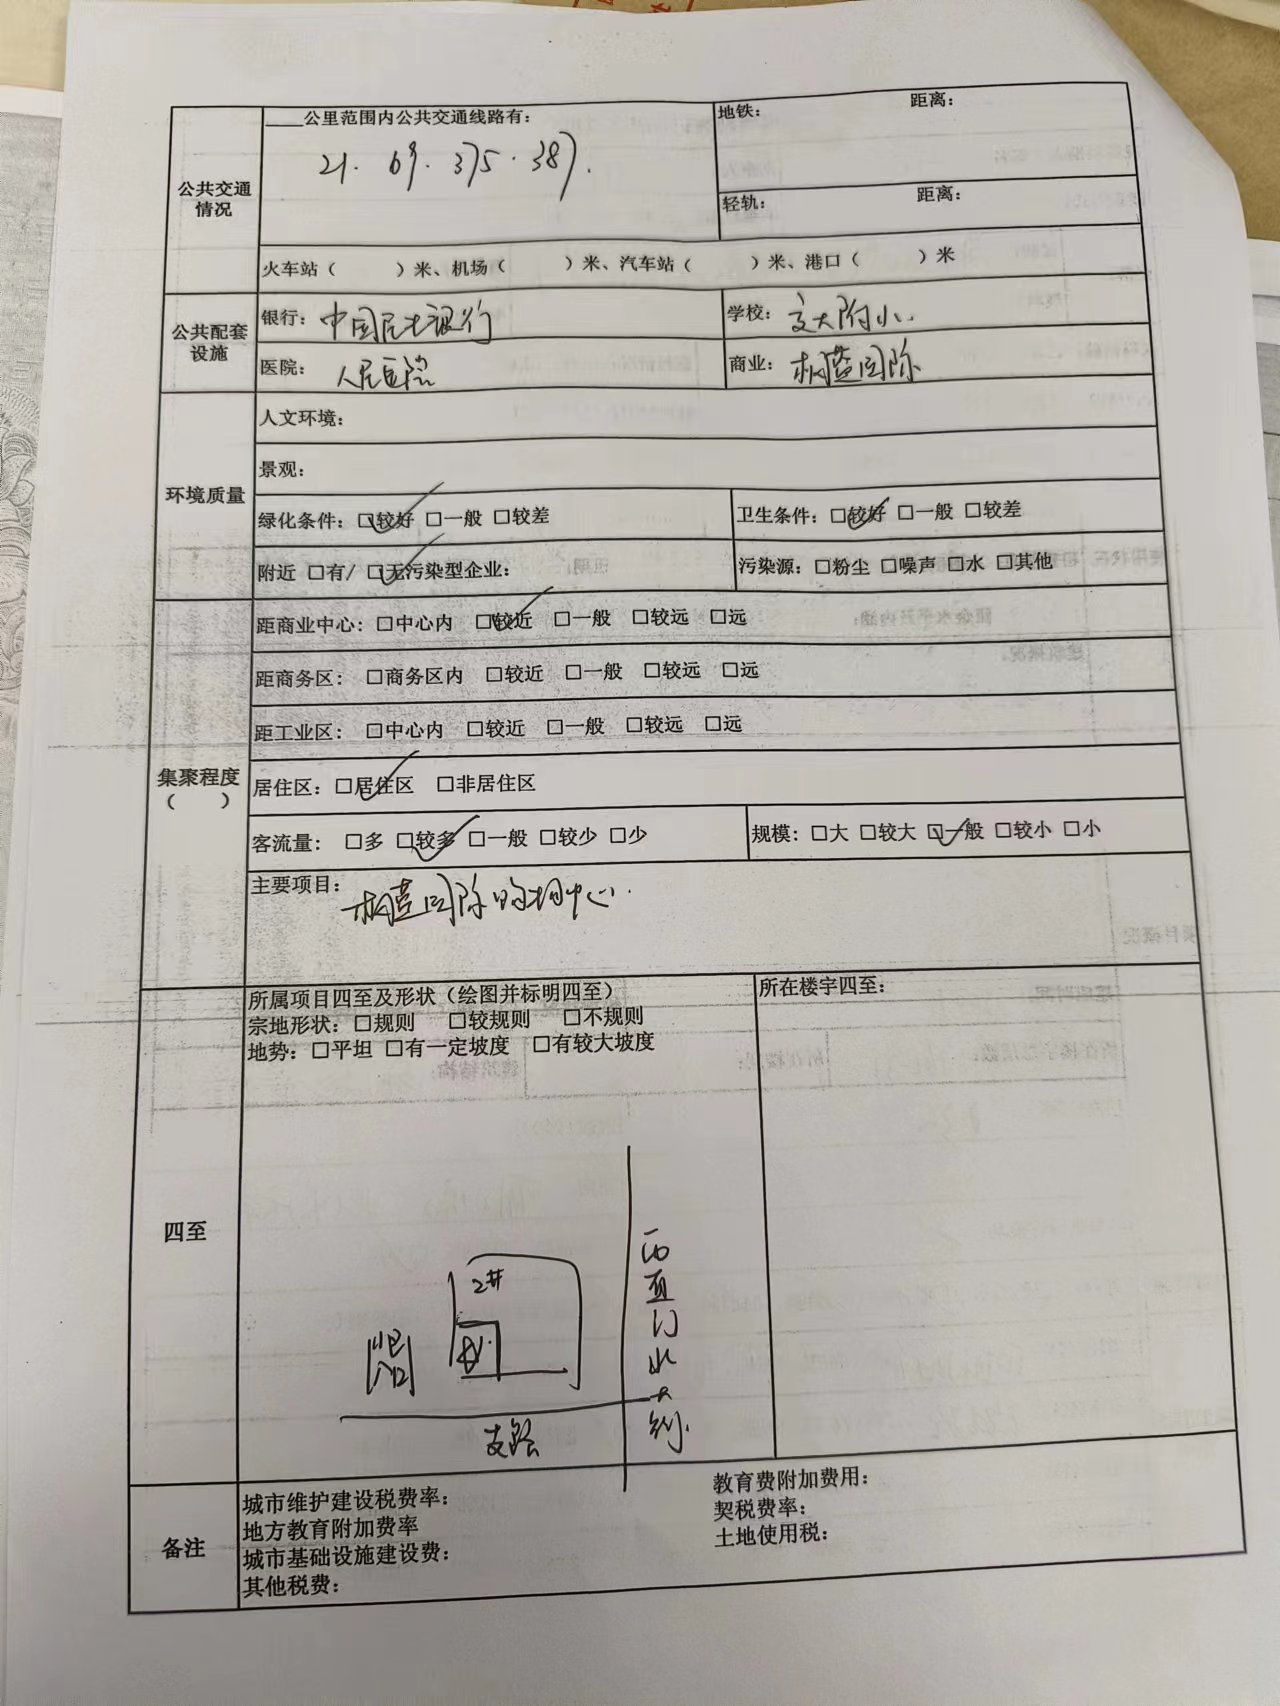 ____公里范围内公共交通线路有：
21. 69. 375. 387.
地铁： 距离：
轻轨： 距离：
公共交通情况
火车站（ ）米、机场（ ）米、汽车站（ ）米、港口（ ）米
公共配套设施
银行：中国民生银行 学校：交大附小.
医院：人民医院 商业：枫蓝国际
环境质量
人文环境：
景观：
绿化条件：☑较好 □一般 □较差 卫生条件：☑较好 □一般 □较差
附近 □有/ ☑无污染型企业： 污染源：□粉尘 □噪声 □水 □其他
集聚程度
（ ）
距商业中心：□中心内 ☑较近 □一般 □较远 □远
距商务区：□商务区内 □较近 □一般 □较远 □远
距工业区：□中心内 □较近 □一般 □较远 □远
居住区：☑居住区 □非居住区
客流量：□多 ☑较多 □一般 □较少 □少 规模：□大 □较大 ☑一般 □较小 □小
主要项目：枫蓝国际购物中心.
四至
所属项目四至及形状（绘图并标明四至） 所在楼宇四至：
宗地形状：□规则 □较规则 □不规则
地势：□平坦 □有一定坡度 □有较大坡度
2#
西直门北大街.
支路
备注
城市维护建设税费率： 教育费附加费用：
地方教育附加费率 契税费率：
城市基础设施建设费： 土地使用税：
其他税费：